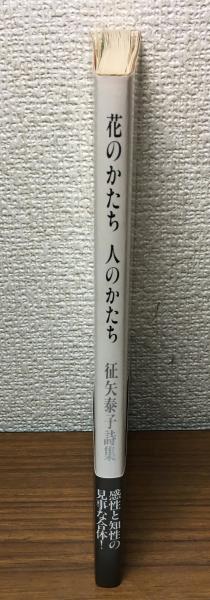 花のかたち 人のかたち
征矢泰子詩集
感性と知性の
見事な合体！